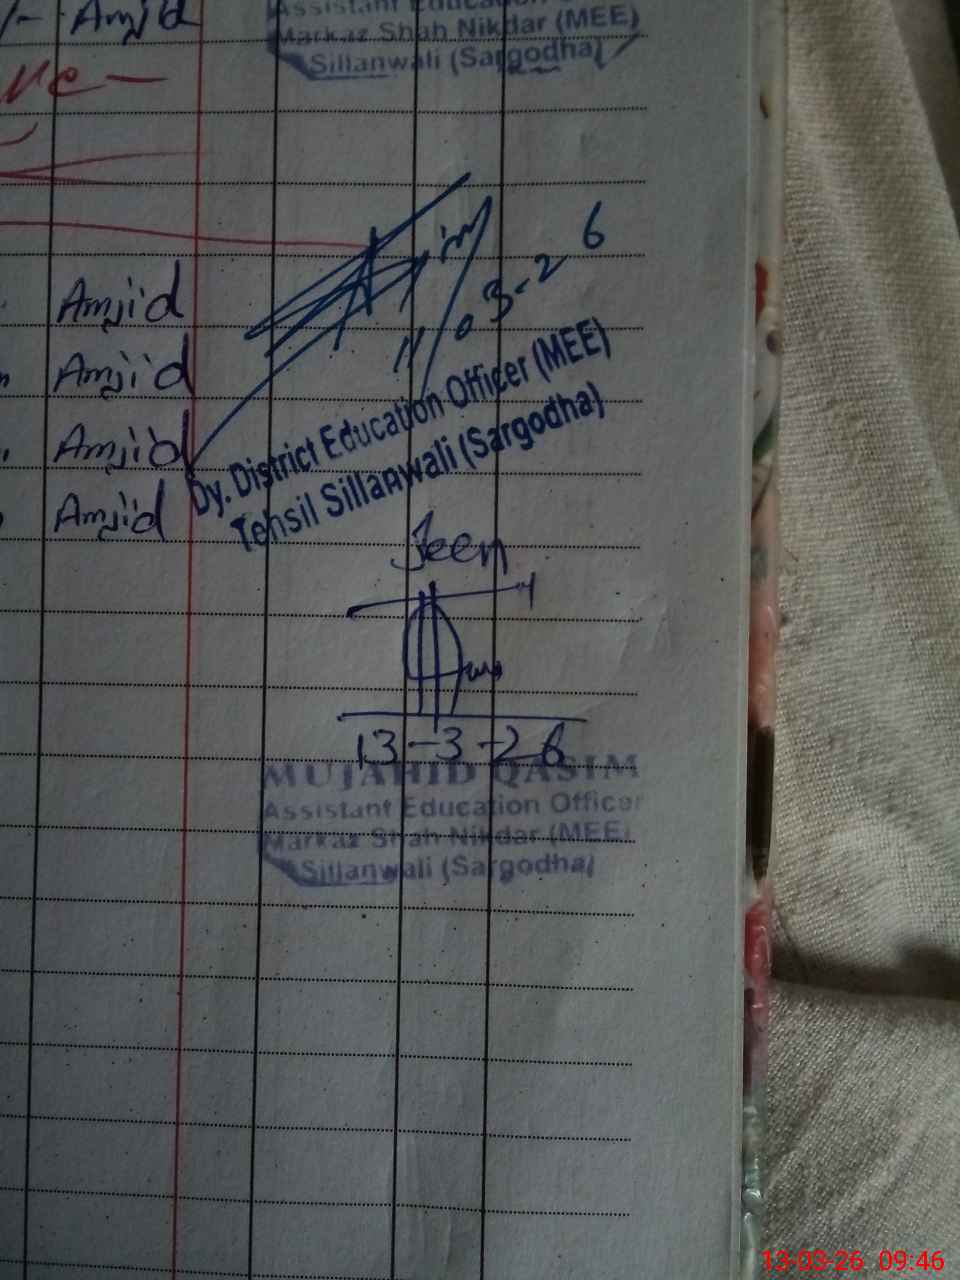 Amjid
Assistant Education
Markaz Shah Nikdar (MEE)
Sillanwali (Sargodha)
Amjid
Amjid
Amjid
Amjid
11/03-26
Dy. District Education Officer (MEE)
Tehsil Sillanwali (Sargodha)
Seen
13-3-26
MUJAHID QASIM
Assistant Education Officer
Markaz Shah Nikdar (MEE)
Sillanwali (Sargodha)
13-03-26 09:46